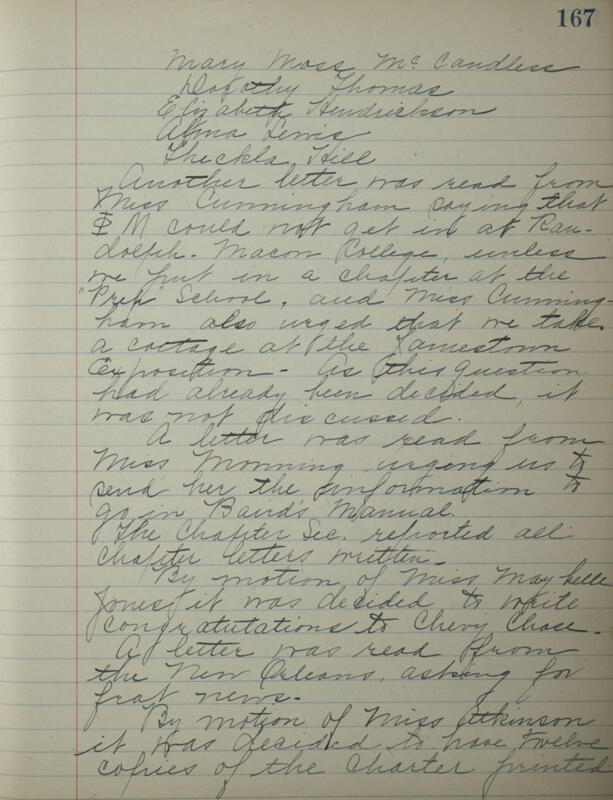 167
Mary Moss McCandless
Dorothy Thomas
Elizabeth Hendrickson
Alma Lewis
Theckla Hill
Another letter was read from
Miss Cunningham saying that
Φ M could not get in at Ran-
dolph-Macon College, unless
we put in a chapter at the
"Prep" School, and Miss Cunning-
ham also urged that we take
a cottage at the Jamestown
Exposition - As this question
had already been decided, it
was not discussed.
A letter was read from
Miss Monning urging us to
send her the information to
go in Baird's Manual.
The Chapter Sec. reported all
chapter letters written -
By motion of Miss Maybelle
Jones, it was decided to write
congratutations to Chevy Chase -
A letter was read from
the New Orleans, asking for
frat news -
By motion of Miss Atkinson
it was decided to have twelve
copies of the charter printed